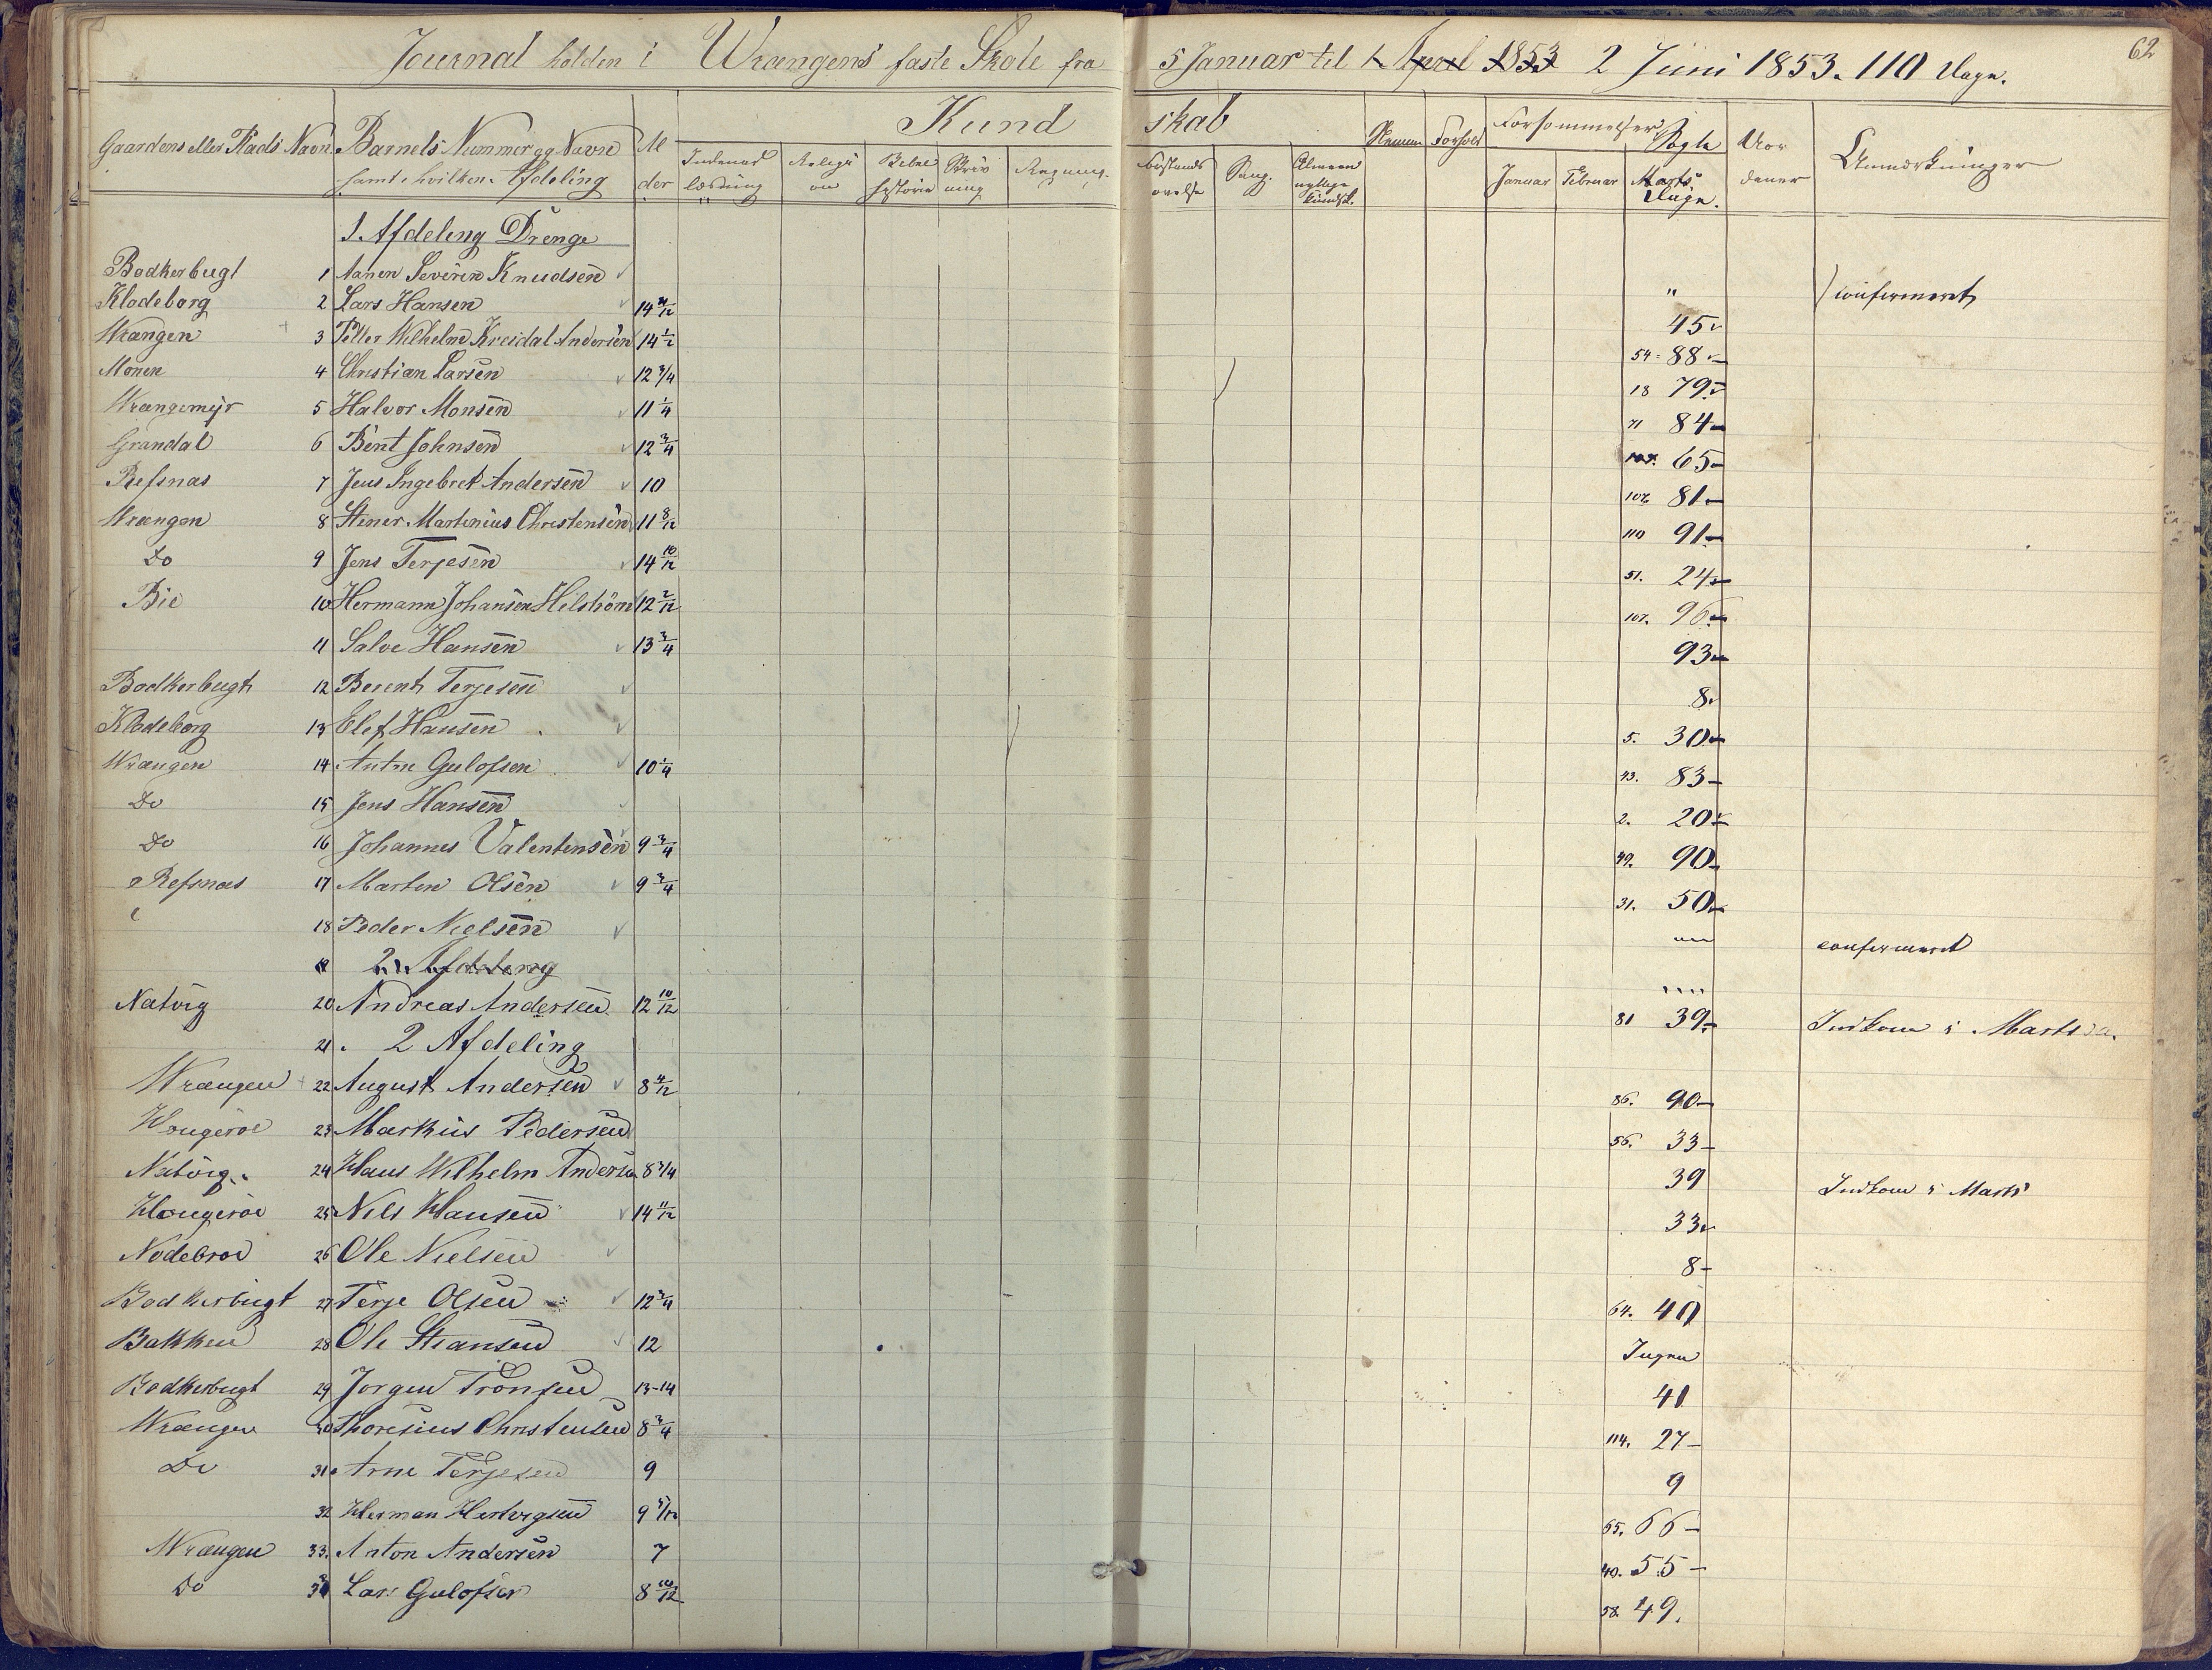 62
Journal holden i Wrængens faste Skole fra 5 Januar til 1 April 1853 2 Juni 1853. 110 Dage.
Kundskab
Gaardens eller Plads Navn Barnets Nummer og Navn samt i hvilken Afdeling Al der Indenads læsning Religi on Bibel historie Skriv ning Regning Forstands øvelse Sang. Almeen nyttige Kundsk. Nemme Forhold Forsømmelser Januar Februar Marts Søgte Dage. Vor dener Anmærkninger
1 Afdeling Drenge
Bodkerbugt 1 Aanen Severin Knudsen " confirmeret
Klodeborg 2 Lars Hansen 14 4/12 45
Wrængen 3 Petter Wilhelm Kreidal Andersen 14 1/2 54 88
Monen 4 Christian Larsen 12 3/4 18 79
Wrængemyr 5 Halvor Monsen 11 1/4 71 84
Grandal 6 Bent Johnsen 12 3/4 65
Refsnæs 7 Jens Ingebret Andersen 10 107 81
Wrængen 8 Stener Martinius Christensen 11 8/12 110 91
Do 9 Jens Terjesen 14 10/12 51. 24
Bie 10 Hermann Johansen Hilström 12 2/12 107. 96
11 Salve Hansen 13 3/4 93
Bodkerbugt 12 Berent Terjesen 8
Klodeborg 13 Elef Hansen 5. 30
Wrængen 14 Anton Gulofsen 10 1/4 43. 83
Do 15 Jens Hansen 2. 20
Do 16 Johannes Valentinsen 9 3/4 49. 90
Refsnæs 17 Marten Olsen 9 3/4 31. 50
18 Peder Nielsen confirmeret
19 2. Afdeling
Natvig 20 Andreas Andersen 12 10/12 81 39 Indkom i Marts
21. 2 Afdeling
Wrængen 22 August Andersen 8 4/12 86. 90
Hougeroe 23 Markus Pedersen 56. 33
Natvig 24 Hans Wilhelm Andersen 8 3/4 39 Indkom i Marts
Hougeroe 25 Nils Hansen 14 11/12 33
Nodebroe 26 Ole Nielsen 8
Bodkerbugt 27 Terje Olsen 12 3/4 64. 40
Bakken 28 Ole Stiansen 12 Ingen
Bodkerbugt 29 Jorgen Tronsen 13-14 41
Wrængen 30 Thoresius Christensen 8 3/4 114. 27
Do 31 Arne Terjesen 9 9
32 Herman Hertvigsen 9 5/12 65. 66
Wrængen 33. Anton Andersen 7 40. 55
Do 34 Lars Gulofsen 8 10/12 58 49.